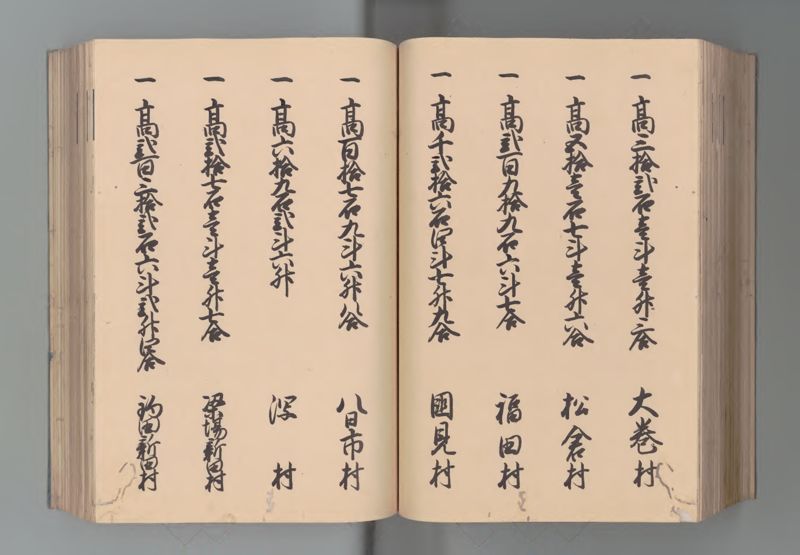 一 高三拾弐石壱斗壱升三合 大巻村
一 高五拾壱石七斗壱升六合 松倉村
一 高弐百九拾九石六斗七合 福田村
一 高千弐拾六石四斗七升九合 國見村
一 高百拾七石九斗六升八合 八日市村
一 高六拾九石弐斗六升 深村
一 高弐拾七石壱斗壱升七合 場新田村
一 高弐百三拾弐石六斗弐升四合 新田村